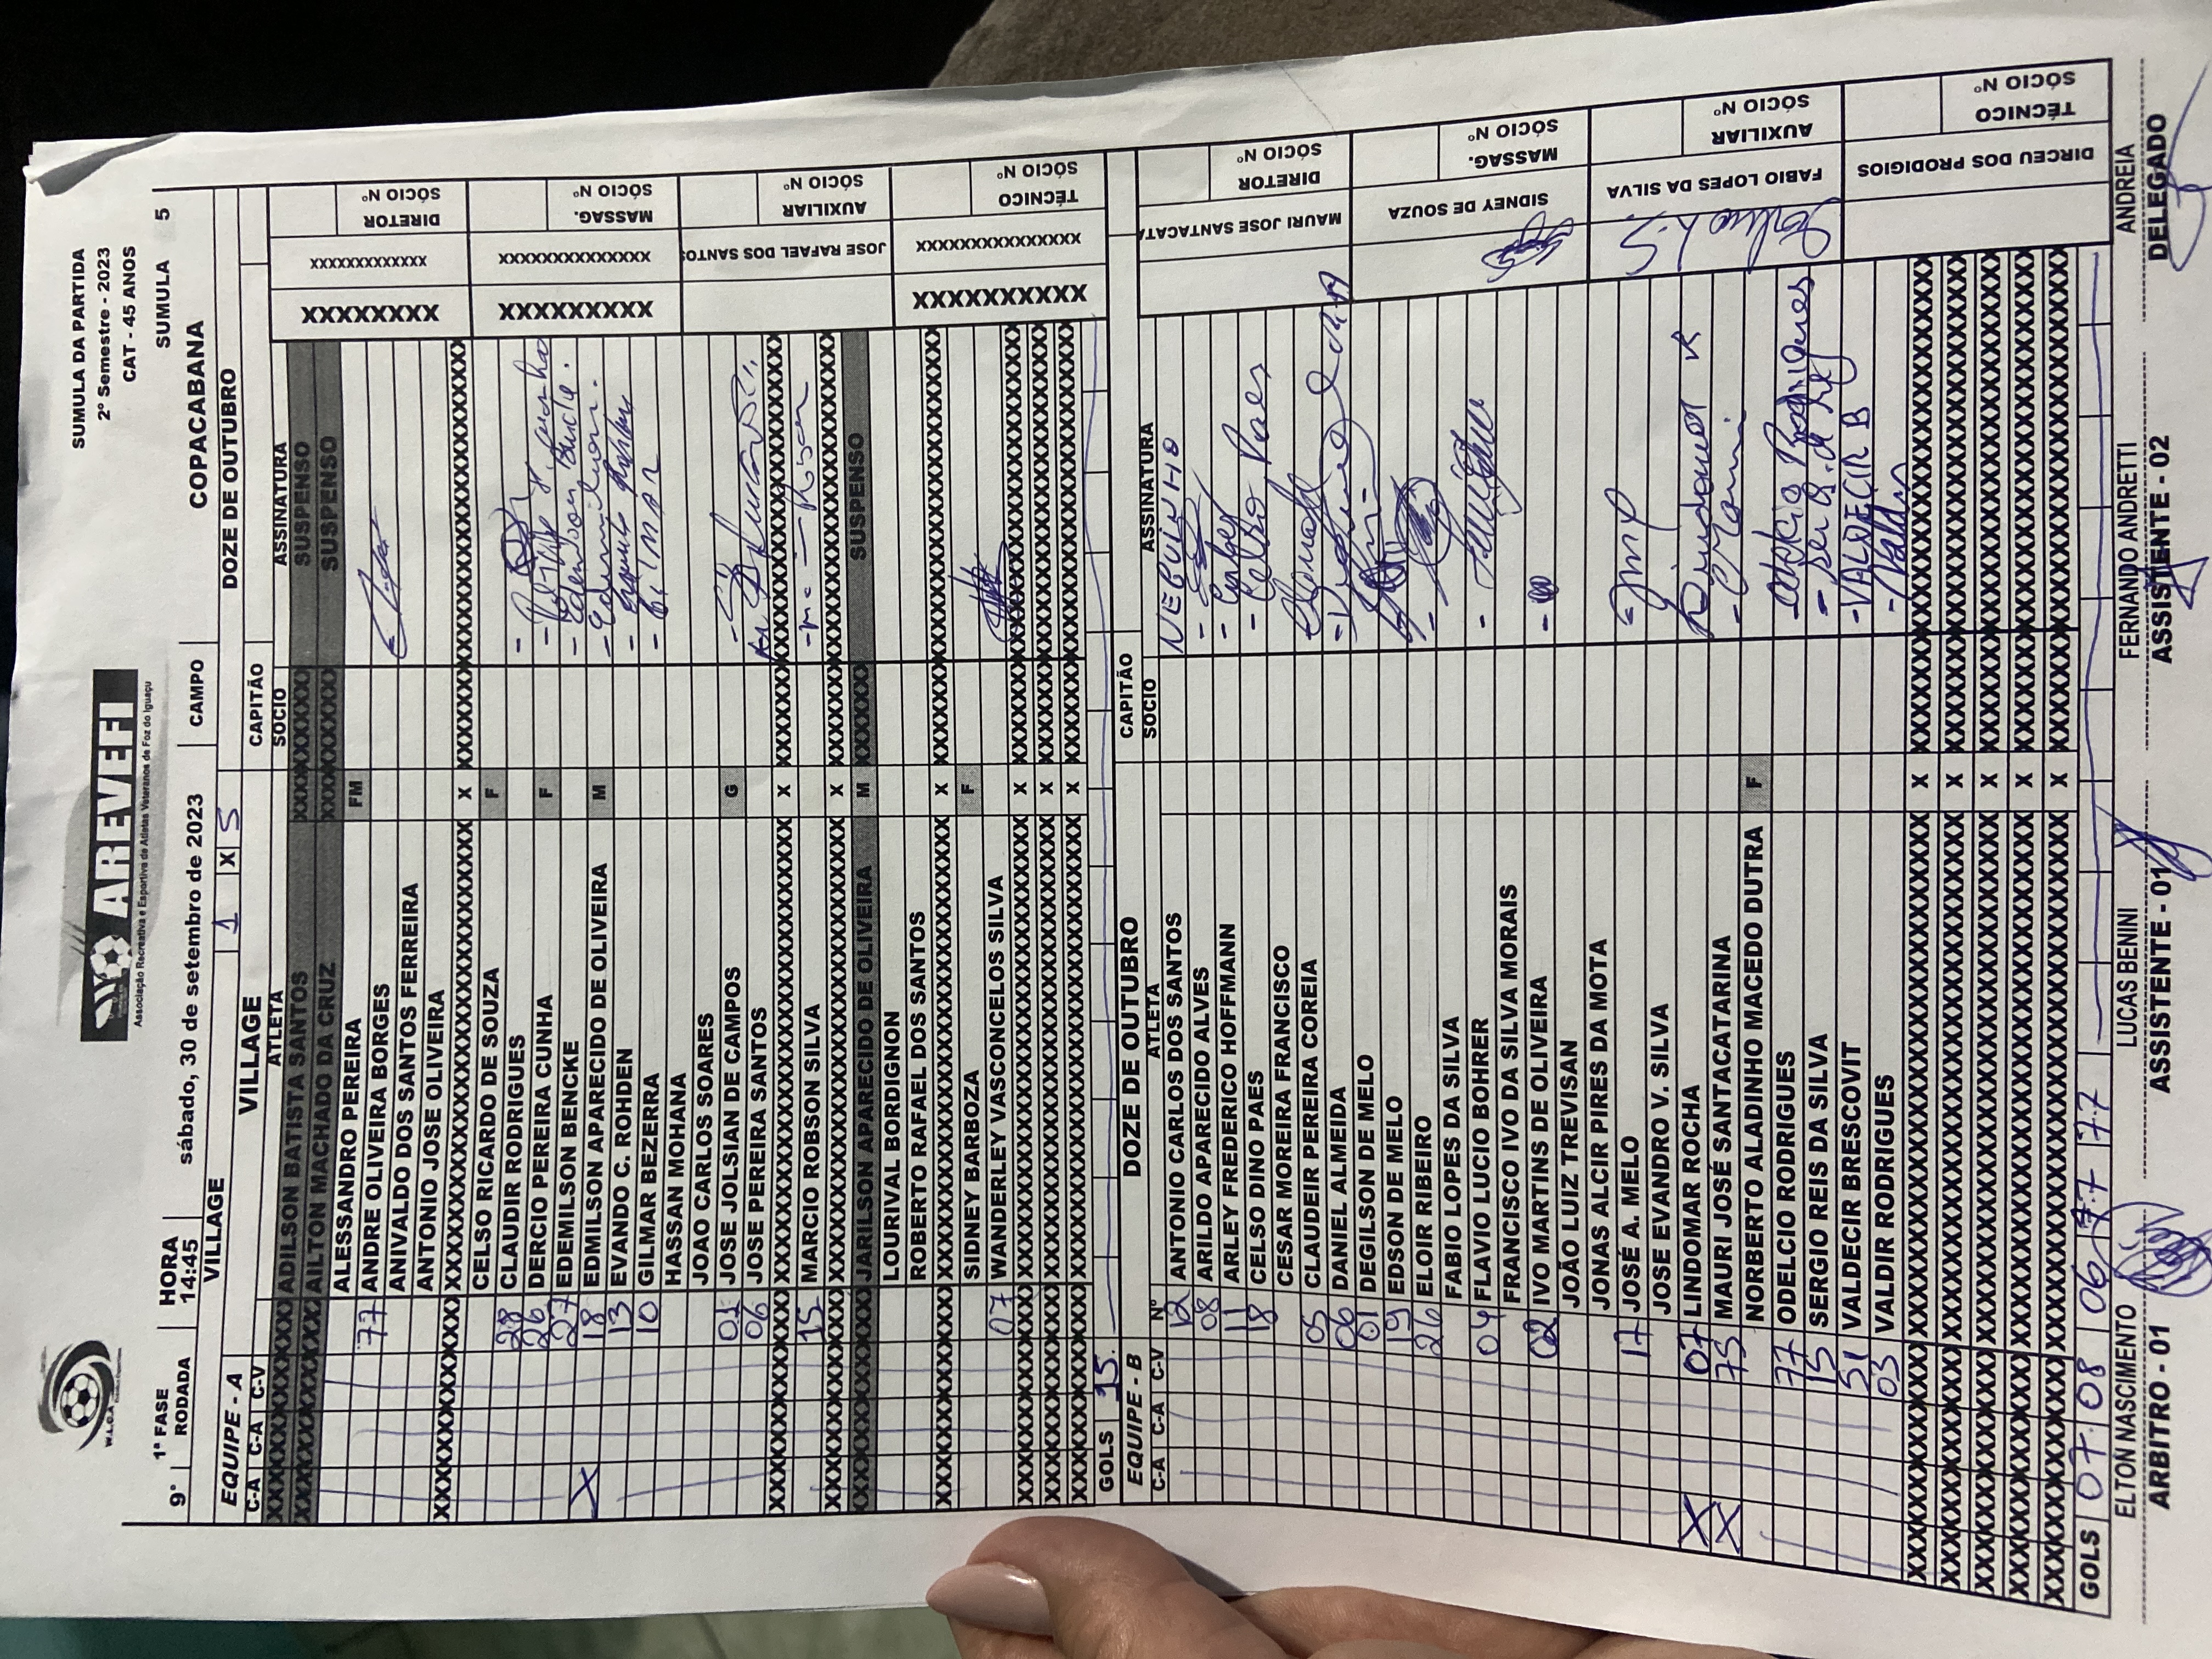 W.L.C.A
AREVEFI
Associação Recreativa e Esportiva de Atletas Veteranos de Foz do Iguaçu
SUMULA DA PARTIDA
2º Semestre - 2023
CAT - 45 ANOS
9º 1ª FASE HORA SUMULA 5
RODADA 14:45 sábado, 30 de setembro de 2023 CAMPO COPACABANA
VILLAGE 1 X 5 DOZE DE OUTUBRO
EQUIPE - A VILLAGE CAPITÃO
C-A C-A C-V ATLETA SOCIO ASSINATURA
XXXXXXXXXX ADILSON BATISTA SANTOS XXXXXXXXXX SUSPENSO
XXXXXXXXXX AILTON MACHADO DA CRUZ XXXXXXXXXX SUSPENSO
ALESSANDRO PEREIRA FM
77 ANDRE OLIVEIRA BORGES
ANIVALDO DOS SANTOS FERREIRA
ANTONIO JOSE OLIVEIRA
X
CELSO RICARDO DE SOUZA F
28 CLAUDIR RODRIGUES
26 DERCIO PEREIRA CUNHA F
27 EDEMILSON BENCKE
X 18 EDMILSON APARECIDO DE OLIVEIRA M
13 EVANDO C. ROHDEN
10 GILMAR BEZERRA
HASSAN MOHANA
JOAO CARLOS SOARES
01 JOSE JOLSIAN DE CAMPOS G
06 JOSE PEREIRA SANTOS
X
15 MARCIO ROBSON SILVA
X
JARILSON APARECIDO DE OLIVEIRA M XXXXXXX SUSPENSO
LOURIVAL BORDIGNON
ROBERTO RAFAEL DOS SANTOS
X
SIDNEY BARBOZA F
07 WANDERLEY VASCONCELOS SILVA
X
X
X
GOLS 15
XXXXXXXX XXXXXXXXXXXXX DIRETOR
SÓCIO Nº
XXXXXXXXX XXXXXXXXXXXXXXX MASSAG.
SÓCIO Nº
JOSE RAFAEL DOS SANTOS AUXILIAR
SÓCIO Nº
XXXXXXXXXX XXXXXXXXXXXXXXX TÉCNICO
SÓCIO Nº
EQUIPE - B DOZE DE OUTUBRO CAPITÃO
C-A C-A C-V Nº ATLETA SOCIO ASSINATURA
12 ANTONIO CARLOS DOS SANTOS NEGUINHO
08 ARILDO APARECIDO ALVES
11 ARLEY FREDERICO HOFFMANN
18 CELSO DINO PAES - Celso Paes
CESAR MOREIRA FRANCISCO
05 CLAUDEIR PEREIRA CORREIA
06 DANIEL ALMEIDA
01 DEGILSON DE MELO
19 EDSON DE MELO
26 ELOIR RIBEIRO
FABIO LOPES DA SILVA
04 FLAVIO LUCIO BOHRER
FRANCISCO IVO DA SILVA MORAIS
02 IVO MARTINS DE OLIVEIRA
JOÃO LUIZ TREVISAN
JONAS ALCIR PIRES DA MOTA
17 JOSÉ A. MELO
JOSE EVANDRO V. SILVA
X 07 LINDOMAR ROCHA
X 75 MAURI JOSÉ SANTACATARINA
NORBERTO ALADINHO MACEDO DUTRA F
77 ODELCIO RODRIGUES Odelcio Rodrigues
15 SERGIO REIS DA SILVA
51 VALDECIR BRESCOVIT - VALDECIR B
03 VALDIR RODRIGUES - Valdir
X
X
X
X
X
GOLS 07 08 06 77 77
MAURI JOSE SANTACATA DIRETOR
SÓCIO Nº
SIDNEY DE SOUZA MASSAG.
SÓCIO Nº
FABIO LOPES DA SILVA AUXILIAR
SÓCIO Nº
DIRCEU DOS PRODIGIOS TÉCNICO
SÓCIO Nº
ELTON NASCIMENTO LUCAS BENINI FERNANDO ANDRETTI ANDREIA
ARBITRO - 01 ASSISTENTE - 01 ASSISTENTE - 02 DELEGADO